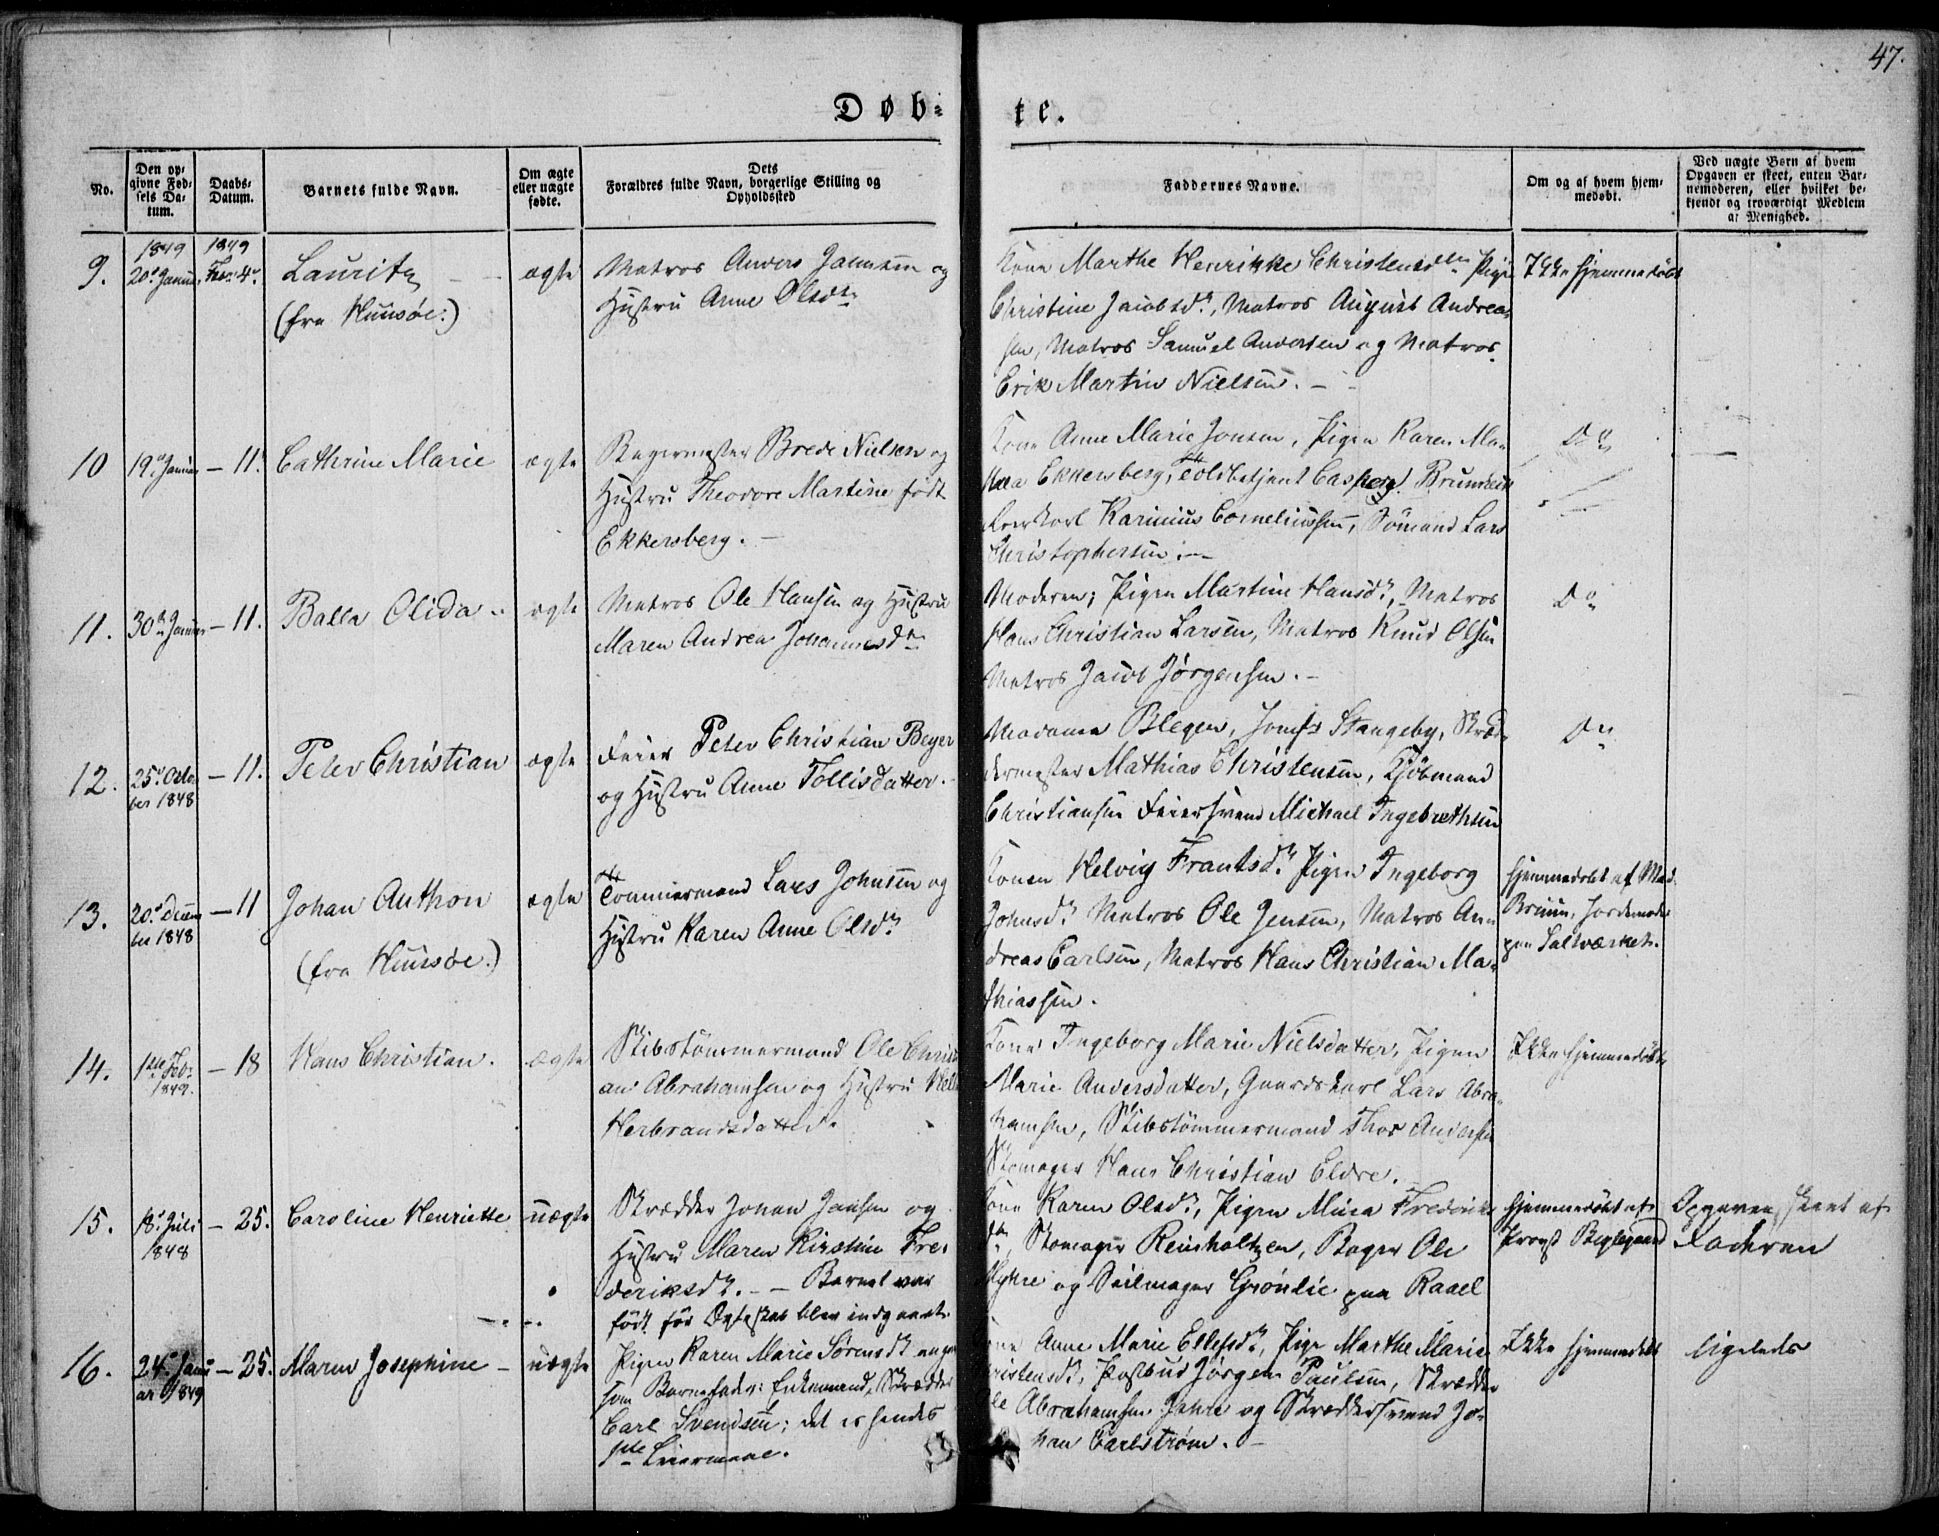 47.
Døb=
te.
No.
Den op=
givne Fød=
sels Da=
tum.
Daabs=
Datum.
Barnets fulde Navn.
Om ægte
eller uægte
fødte.
Dets
Forældres fulde Navn, borgerlige Stilling og
Opholdssted
Faddernes Navne.
Om og af hvem hjem=
medøbt.
Ved uægte Børn af hvem
Opgaven er skeet, enten Bar=
nemoderen, eller hvilket be=
kjendt og troværdigt Medlem
af Menighed.
9.
1849
20de Januar
1849
Febr. 4de
Lauritz
(fra Huusøe:)
ægte
Matros Anders Jannsen og
Hustru Anne Olsdtr
Kone Marthe Henrikke Christensdtr Pige
Christine Jacobsdr, Matros August Andrea-
sen, Matros Samuel Andersen og Matros
Erik Martin Nielsen. -
Ikke hjemmedøbt
10
19de Januar
- 11.
Cathrine Marie
ægte
Bagermester Brede Nielsen og
Hustru Theodore Martine født
Ekkersberg. -
Kone Anne Marie Jonsen, Pigen Karen Ma-
thea Ekkersberg, Toldbetjent Casperg.
Karinius Corneliussen, Sömand Lars
Christophersen. -
Do
11.
30te Januar
- 11.
Balla Olida
ægte
Matros Ole Hansen og Hustru
Maren Andrea Johannesdtr
Moderen; Pigen Martine Hansdr, Matros
Hans Christian Larsen, Matros Knud Olsen
Matros Jacob Jørgensen. -
Do
12.
25de Octo
ber 1848
- 11.
Peter Christian
ægte
Feier Peter Christian Beyer
og Hustru Anne Tollisdatter.
Madame Blegen, Jomfr Stangeby, Skræd-
dermester Mathias Christensen, Kjöbmand
Christiansen Feiersvend Michael Ingebrethsen
Do
13.
20de Decem
ber 1848
- 11
Johan Anthon
(fra Huusøe.)
ægte
Tömmermand Lars Johnsen og
Hustru Karen Anne Olsdr
Konen Helvig Frantsdr Pigen Ingeborg
Johnsdr Matros Ole Jensen, Matros An-
dreas Carlsen, Matros Hans Christian Ma-
thiassen.
hjemmedøbt af Mad.
Bruun, Jordemoder
paa Saltværket.
14.
1ste Feb.
1849.
- 18
Hans Christian.
ægte
Skibstömmermand Ole Christi
an Abrahamsen og Hustru Hel
Herbrandsdatter
Kone Ingeborg Marie Nielsdatter, Pigen
Marie Andersdatter, Gaardskarl Lars Abra-
hamsen, Skibstömmermand Thor Andersen
Skomager Hans Christian Eldre.
Ikke hjemmedøbt
15.
18de Juli
1848
- 25.
Caroline Henriette
uægte
Skrædder Johan Jansen og
Hustru Maren Kirstine Fre-
deriksdr. - - Barnet var
født før Ægteskab blev indgaaet.
Kone Karen Olsdr, Pigen Mina Frederiks
dtr, Skomager Reinholtzen, Bager Ole
og Seilmager Grönlie paa Raael
hjemmedøbt af
Provst
Opgaven skeet af
Faderen
16.
24de Janu
ar 1849
- 25.
Maren Josephine -
uægte
Pigen Karen Marie Sörensdr angav
som Barnefader: Enkemand, Skrædder
Carl Svendsen; det er hendes
1ste Leiermaal.
Kone Anne Marie Ellefsdr, Pige Marthe Marie
ristensdr, Postbud Jørgen Paulsen, Skrædder
le Abrahamsen Jahre og Skræddersvend Jo-
han Carlström. -
Ikke hjemmedøbt
ligeleds